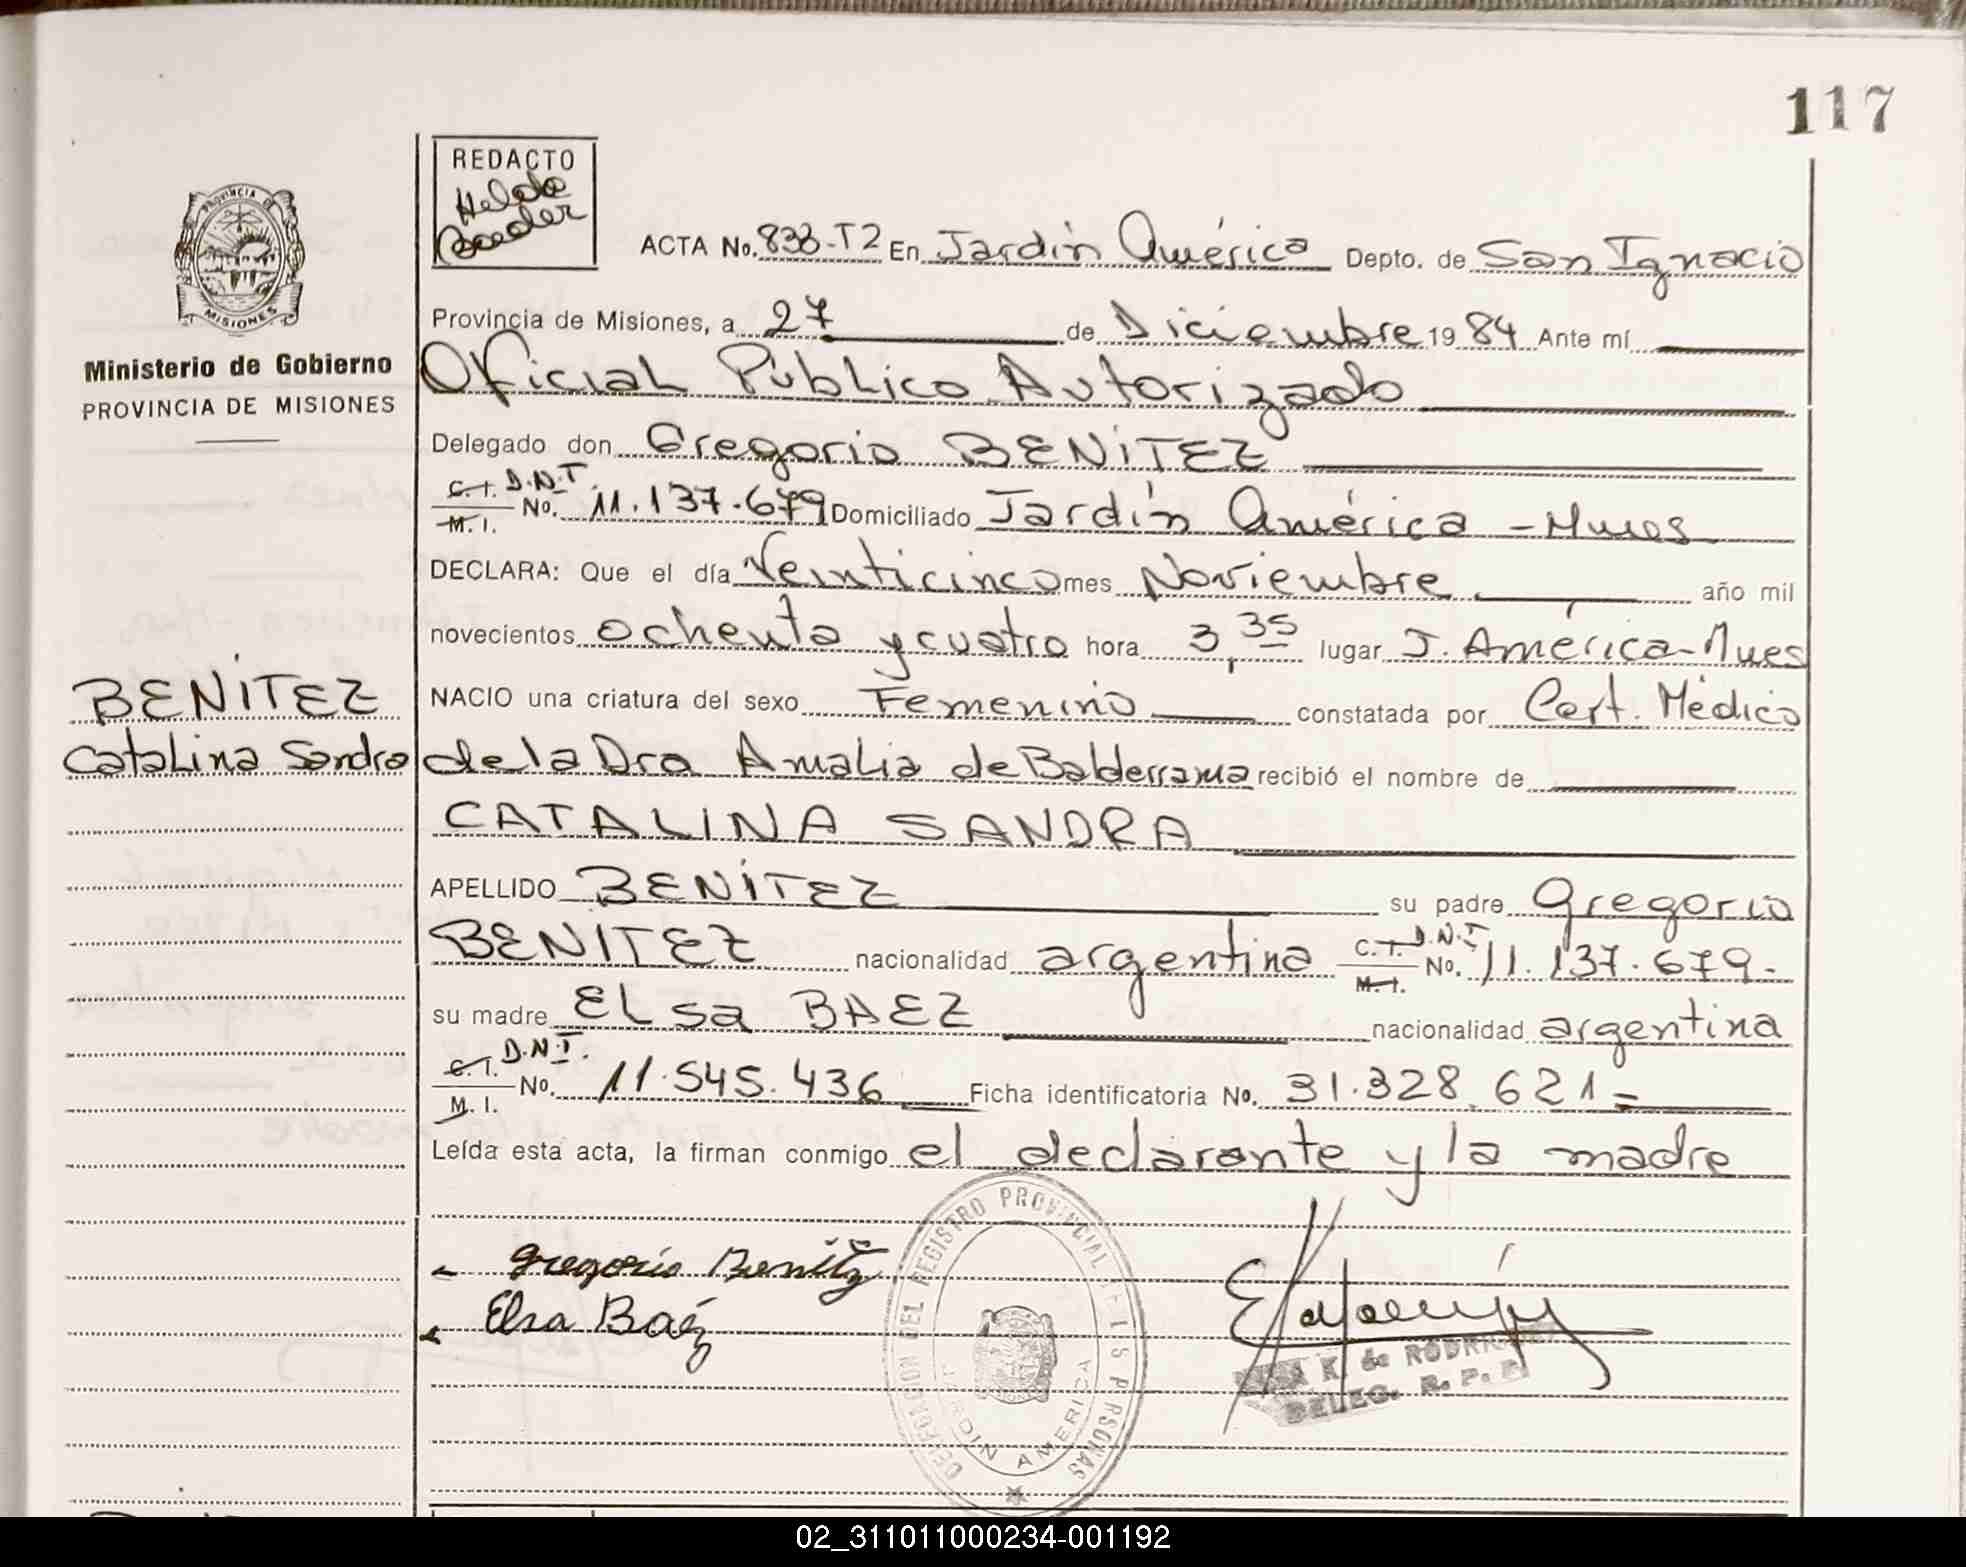 117
REDACTO
Helda
Boeder
PROVINCIA DE
MISIONES
Ministerio de Gobierno
PROVINCIA DE MISIONES
ACTA No. 833-T2 En Jardín América Depto. de San Ignacio
Provincia de Misiones, a 27 de Diciembre 19 84 Ante mí
Oficial Público Autorizado
Delegado don Gregorio BENITEZ
C.I. D.N.I.
M.I. No. 11.137.679 Domiciliado Jardín América - Mnes
DECLARA: Que el día Veinticinco mes Noviembre año mil
novecientos ochenta y cuatro hora 3,35 lugar J. América-Mnes
BENITEZ
Catalina Sandra
NACIO una criatura del sexo Femenino constatada por Cert. Médico
de la Dra Amalia de Balderrama recibió el nombre de
CATALINA SANDRA
APELLIDO BENITEZ su padre Gregorio
BENITEZ nacionalidad argentina C.I. D.N.I. M.I. No. 11.137.679.-
su madre Elsa BAEZ nacionalidad argentina
C.I. D.N.I.
M.I. No. 11.545.436 Ficha identificatoria No. 31.328.621=
Leída esta acta, la firman conmigo el declarante y la madre
Gregorio Benítez
Elsa Baéz
DELEGACION DEL REGISTRO PROVINCIAL DE LAS PERSONAS
JARDIN AMERICA
K. de RODRIGUEZ
DELEG. R. P. P.
02_311011000234-001192